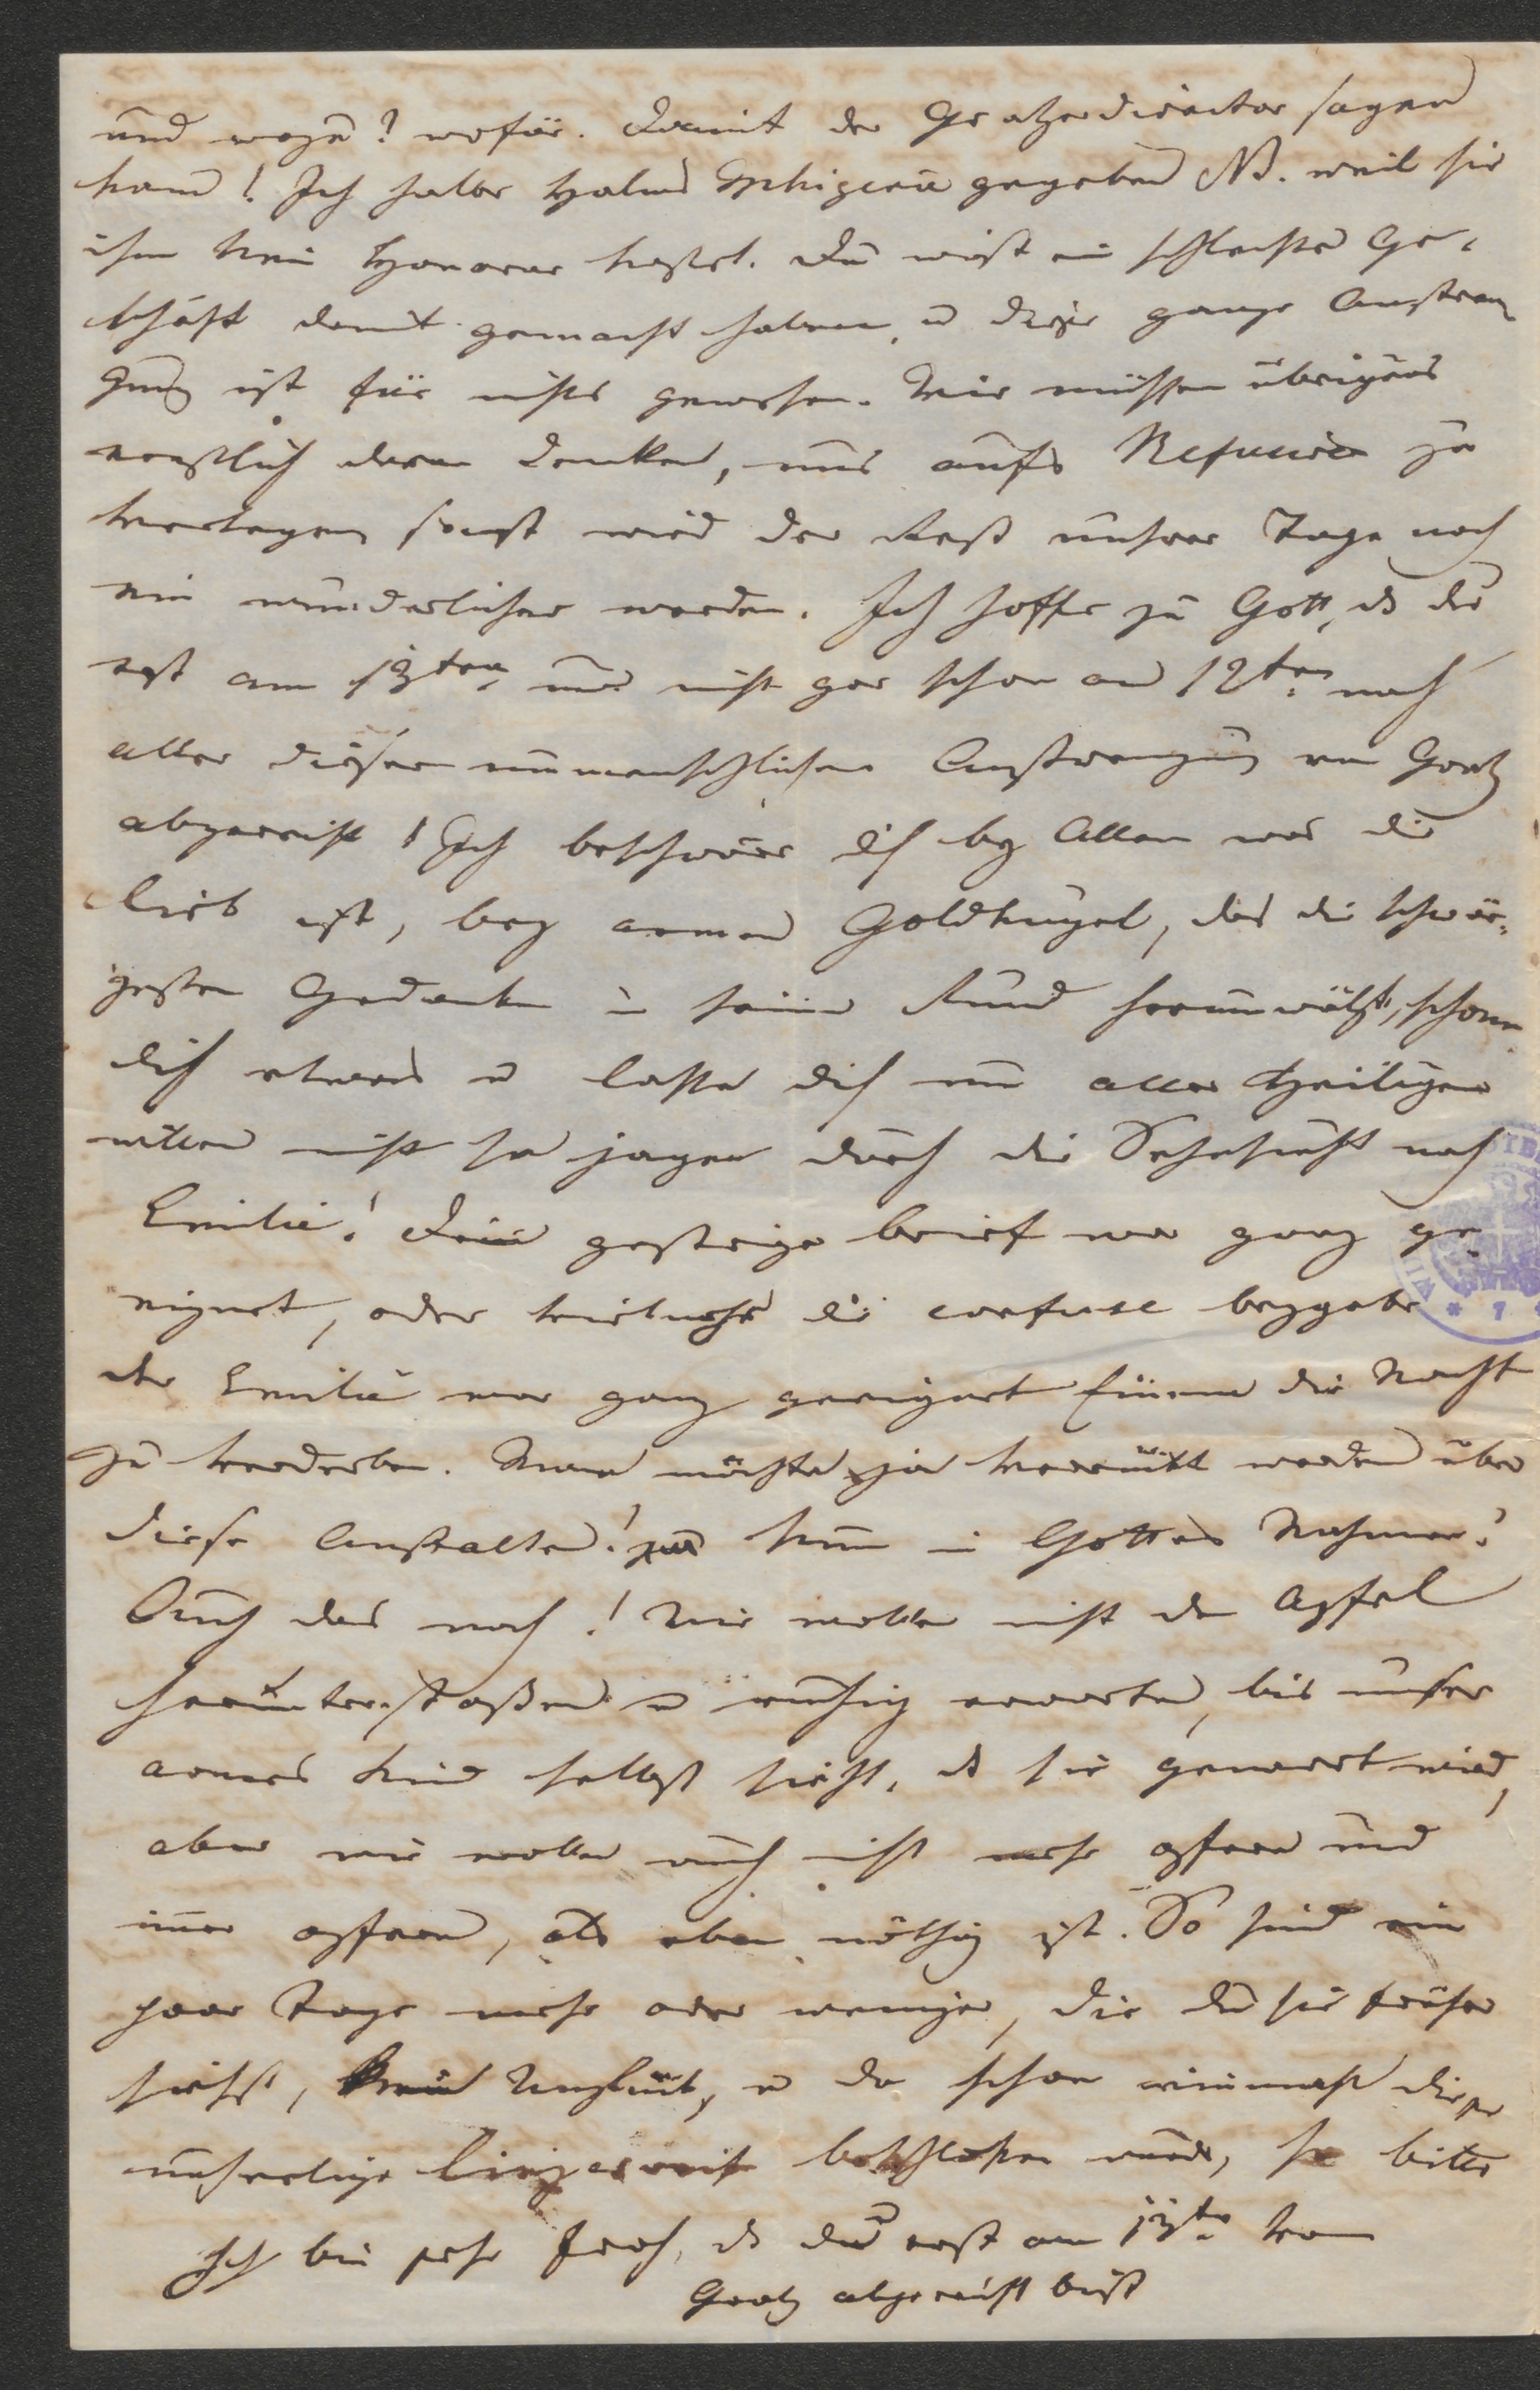 und wozu? wofür. Damit der Gratzerdirector sagen
kann! Ich habe Halms Iphigenie gegeben NB. weil sie
ihm kein Honorar kostet. Du wirst ein schlechtes Ge-
schäft damit gemacht haben, u diese ganze Anstren
gung ist für nichts gewesen. Wir müssen übrigens
ernstlich daran denken, uns aufs Refusiren zu
verlegen sonst wird der Rest unserer Tage noch
ein wunderlicher werden. Ich hoffe zu Gott, ds du
erst am 13ten und nicht gar schon am 12ten nach
aller dieser unmenschlichen Anstrengung von Gratz
abgereist! Ich beschwöre dich bey Allem was dir
lieb ist, bey armen Goldkugel, das die schwär-
zesten Gedanken in seinem Rund herumwälzt, schone
dich etwas u lasse dich um aller Heiligen
willen nicht so jagen durch die Sehnsucht nach
Emilie! Dein gestriger Brief war ganz ge-
eignet, oder vielmehr die confuse beygabe
der Emilie war ganz geeignet Einem die Nacht
zu verderben. Man möchte ja verrückt werden über
diese Anstalten! nun in Gottes Nahmen!
Auch das noch! Wir wollen nicht den Apfel
herunterstoßen u ruhig erwarten, bis unser
armes Kind selbst sieht, ds sie genarrt wird,
aber wir wollen auch nicht mehr opfern und
immer opfern, als eben nöthig ist. So sind ein
paar Tage mehr oder weniger, die du sie früher
siehst, kein Unglück, u da schon einmal diese
unselige Linzerreise beschlossen wurde, so bitte
Ich bin sehr froh, ds du erst am 13ten von
Gratz abgereist bist